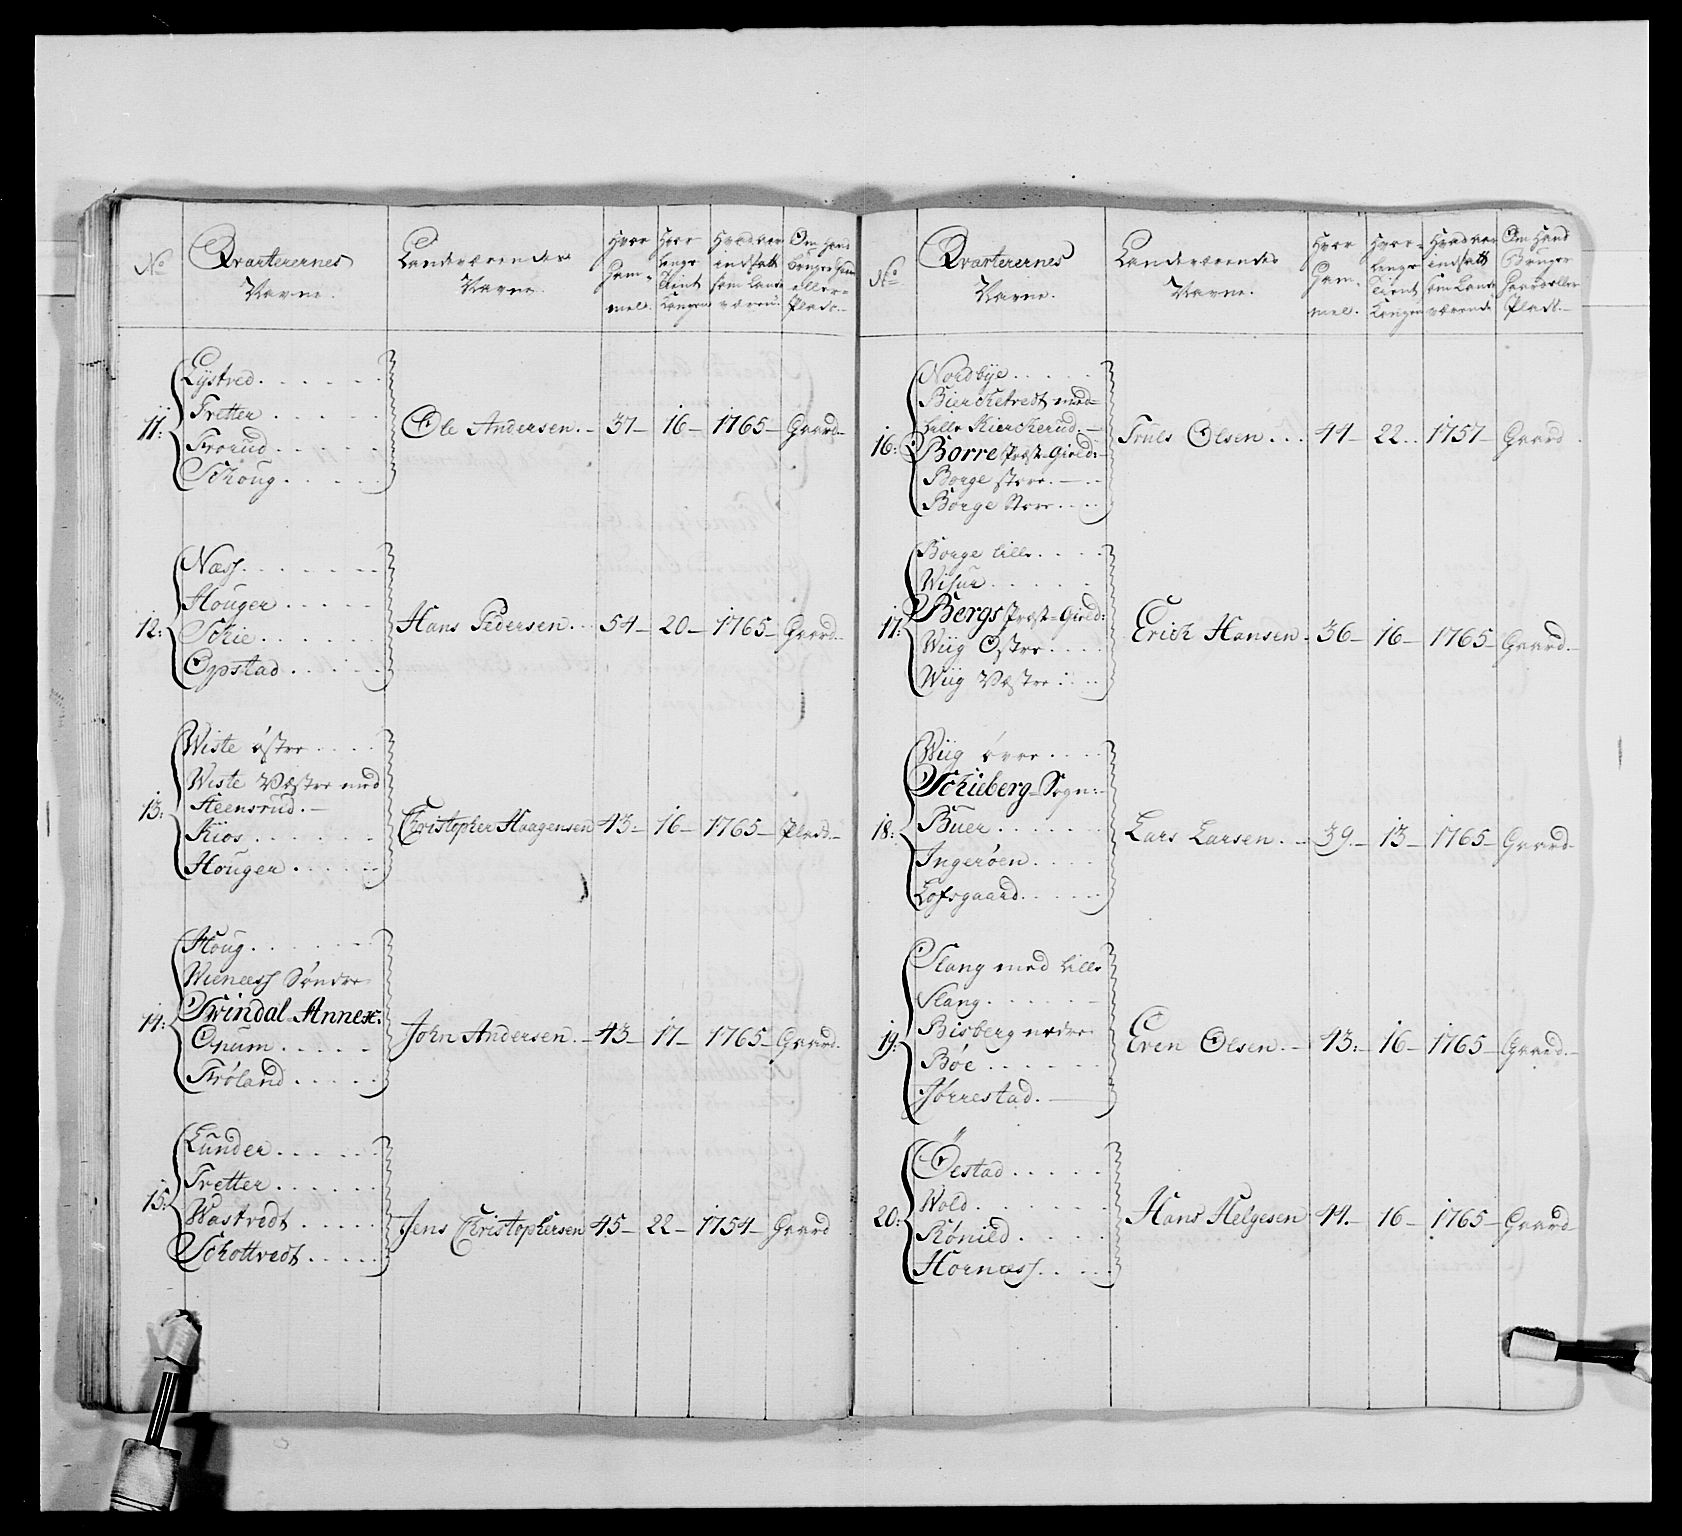 No
Qvarterernes
Navne.
Landeværendes
Navne.
Hvor
Gam-
mel.
Hvor
lenge
Tient
Kongen
Hvad aar
indsatt
som Lande
værend
Om Hand
Bruger Gaard
eller
Plads.
11:
Lystved
Tretter
Frorud
Schoug
Ole Andersen. 37 16 1765 Gaard
12:
Næss
Houger
Schie
Opstad
Hans Pedersen. 54 20 1765 Gaard
13:
Wiste østre
Wiste Væstre med
Steensrud.
Kios
Houger
Christopher Haagensen 43 16 1765 Plads.
14:
Houg
Wienæss Søndre
Svindal Annex:
Opum
Frøland
John Andersen. 43 17 1765 Gaard.
15:
Lunder
Tretter
Wastvedt
Schottvedt
Jens Christophersen 45 22 1754 Gaard
No
Qvarterernes
Navne.
Landeværendes
Navne.
Hvor
Gam-
mel.
Hvor
lenge
Tient
Kongen
Hvad aar
indsatt
som Lande
værende
Om Hand
Bruger
Gaard eller
Plads.
16:
Nordbye
Bierchetvedt med
Lille Kierckerud.
Borre Præste-Gield:
Borge store
Borge Store
Truls Olsen 44 22 1757 Gaard
17:
Borge lille
Wisur
Bergs Præste-Gield:
Wiig Østre
Wiig Væstre
Erich Hansen 36 16 1765 Gaard.
18:
Wiig øvre
Schieberg-Sogn:
Buer
Ingerøen
Lofsgaard
Lars Larsen. 39. 13 1765 Gaard
19:
Slang med lille
Slang
Bisberg nedre
Bøe
Jørrestad.
Even Olsen. 43. 16 1765 Gaard.
20:
Öestad
Wold
Rønild
Hornæss
Hans Helgesen 44. 16 1765 Gaard